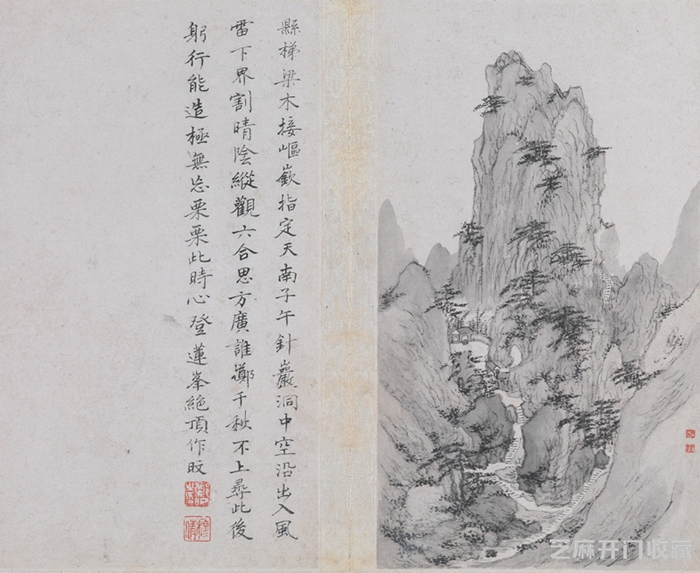 縣梯梁木接嶇嶔指定天南子午針巖洞中空沿出入風
雷下界割晴陰縱觀六合思方廣誰擲千秋不上尋此後
躬行能造極無忘栗栗此時心登蓮峯絕頂作旼
芝麻开门收藏